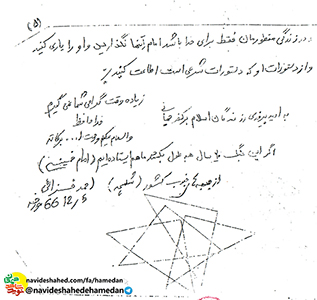 (۵)
در زندگی منظورمان فقط برای خدا باشد امام را تنها نگذارید و او را یاری کنید
و از دستورات او که دستورات شرعی است اطاعت کنید
زیاده وقت گرامی شما نمی گیرم
به امید پیروزی رزمندگان اسلام بر کفر جهانی
خدا حافظ
والسلام علیکم و رحمت ا... و برکاته
اگر این جنگ ۲۰ سال هم طول بکشد ما هم ایستاده ایم (امام خمینی)
از جبهه جنوب کشور (شلمچه) (احمد
66 12/5
navideshahed.com/fa/hamedan
@navideshahedehamedan